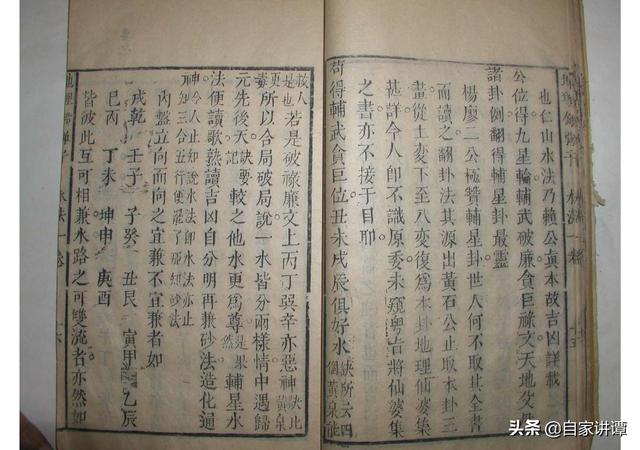 也仁山水法乃賴公眞本故吉凶詳載
公位得九星輪輔武破廉貪巨祿文天地父母
諸卦例翻得輔星卦最靈
楊廖二公極贊輔星卦世人何不取其全書
而讀之翻卦法其源出黃石公止取本卦三
畫從上變下至八變復爲本卦地理仙婆集
甚詳今人卽不識原委未窺粤吉將仙婆集
之書亦不接于目耶
苟得輔武貪巨位丑未戌辰俱好水訣所云四個黃泉能
救人是也更若是破祿廉文上丙丁巽辛亦惡神訣此黃泉
毒所以合局破局說一水皆分兩樣情中遇歸
元先後天訣要記較之他水更爲尊然是果輔星水
法便讀歌熟讀吉凶自分明再兼砂法造化通
神今人止知說水法卽水亦止知三合五行便罷了那知砂法
內盤立向而向之宜兼不宜兼者如
戌乾 壬子 子癸 丑艮 寅甲 乙辰
巳丙 丁未 坤申 庚酉
皆彼此互可相兼水路之可雙流者亦然如
水法一卷 十六
头条 @自家讲谭